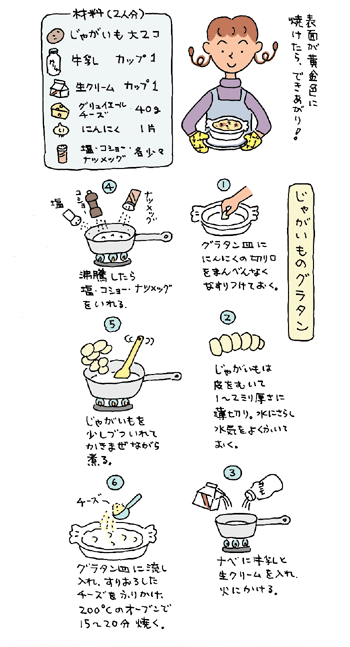 じゃがいものグラタン
材料(2人分)
じゃがいも 大2コ
牛乳 カップ1
生クリーム カップ1
グリュイエール
チーズ 40g
にんにく 1片
塩・コショー・
ナツメッグ 各少々
①
グラタン皿に
にんにくの切り口
をまんべんなく
なすりつけておく。
②
じゃがいもは
皮をむいて
1〜2ミリ厚さに
薄切り。水にさらし
水気をよくふいて
おく。
③
ナベに牛乳と
生クリームを入れ、
火にかける。
④
塩
コショー
ナツメッグ
沸騰したら
塩・コショー・ナツメッグ
をいれる。
⑤
じゃがいもを
少しづついれて
かきまぜながら
煮る。
⑥
チーズ
グラタン皿に流し
入れ、すりおろした
チーズをふりかけ、
200°Cのオーブンで
15〜20分焼く。
表面が黄金色に
焼けたら、できあがり!